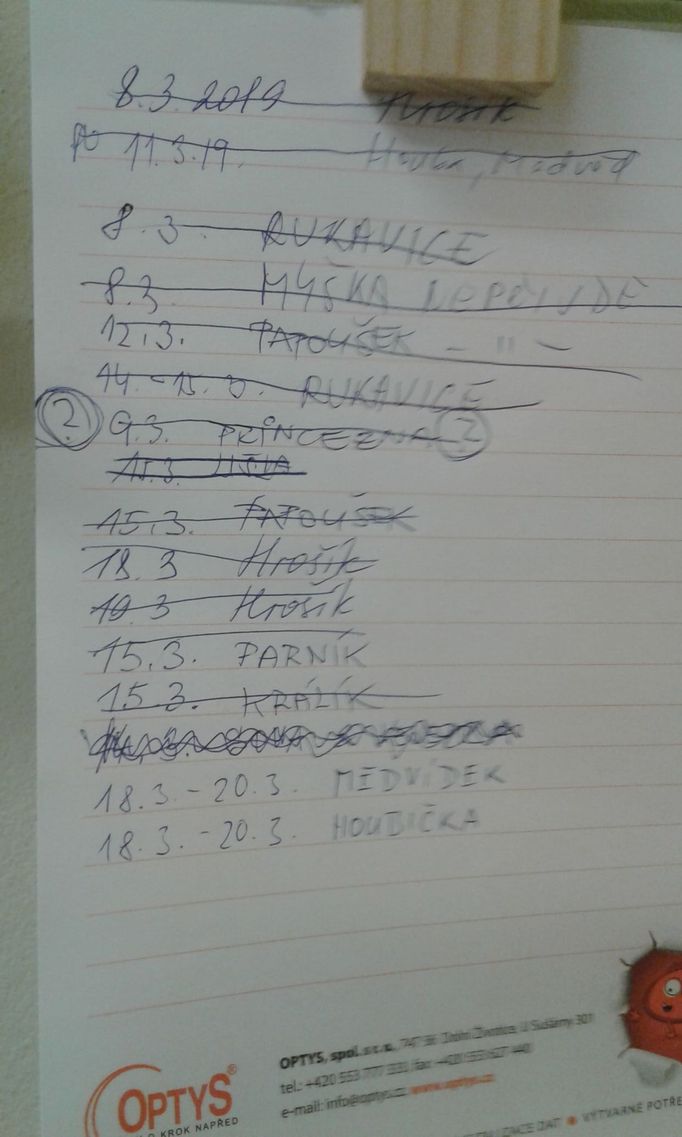 8.3.2019 Hrošík
Po 11.3.19.
8.3. RUKAVICE
8.3. MYŠKA NEPŘIJDE
12.3. PAPOUŠEK - " -
14.-15.3. RUKAVICE
? 9.3. PRINCEZNA ?
15.3.
15.3. PAPOUŠEK
18.3 Hrošík
19.3 Hrošík
15.3. PARNÍK
15.3. KRÁLÍK
18.3.-20.3. MEDVÍDEK
18.3.-20.3. HOUBIČKA
OPTYS, spol. s r.o., 747 56 Dolní Životice, U Sušárny 301
tel.: +420 553 777 331, fax: +420 553
e-mail: info@optys.cz, www.optys.cz
OPTYS®
O KROK NAPŘED
DAT • VÝTVARNÉ POTŘE